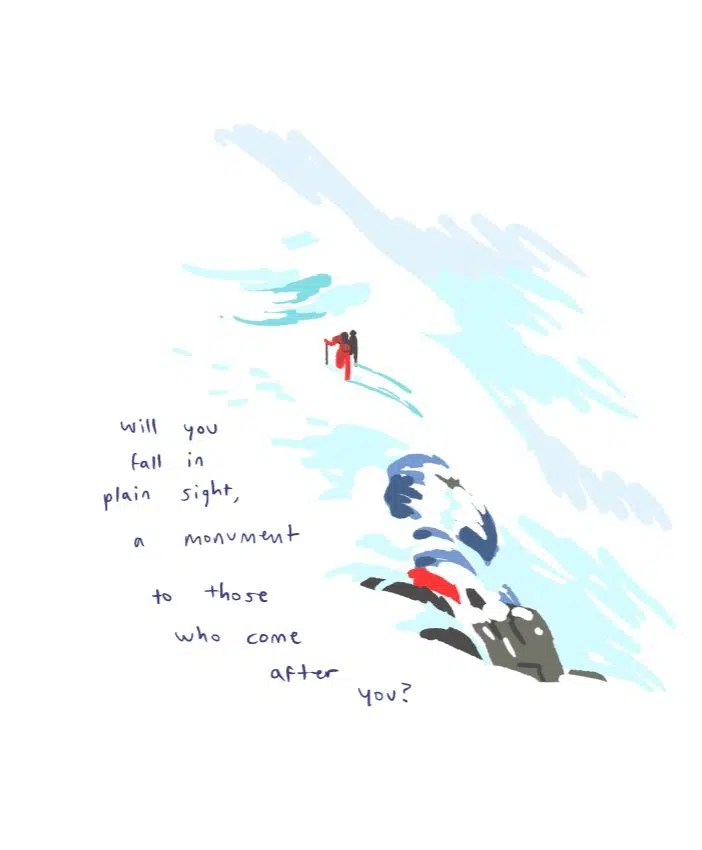 will you
fall in
plain sight,
a monument
to those
who come
after
you?